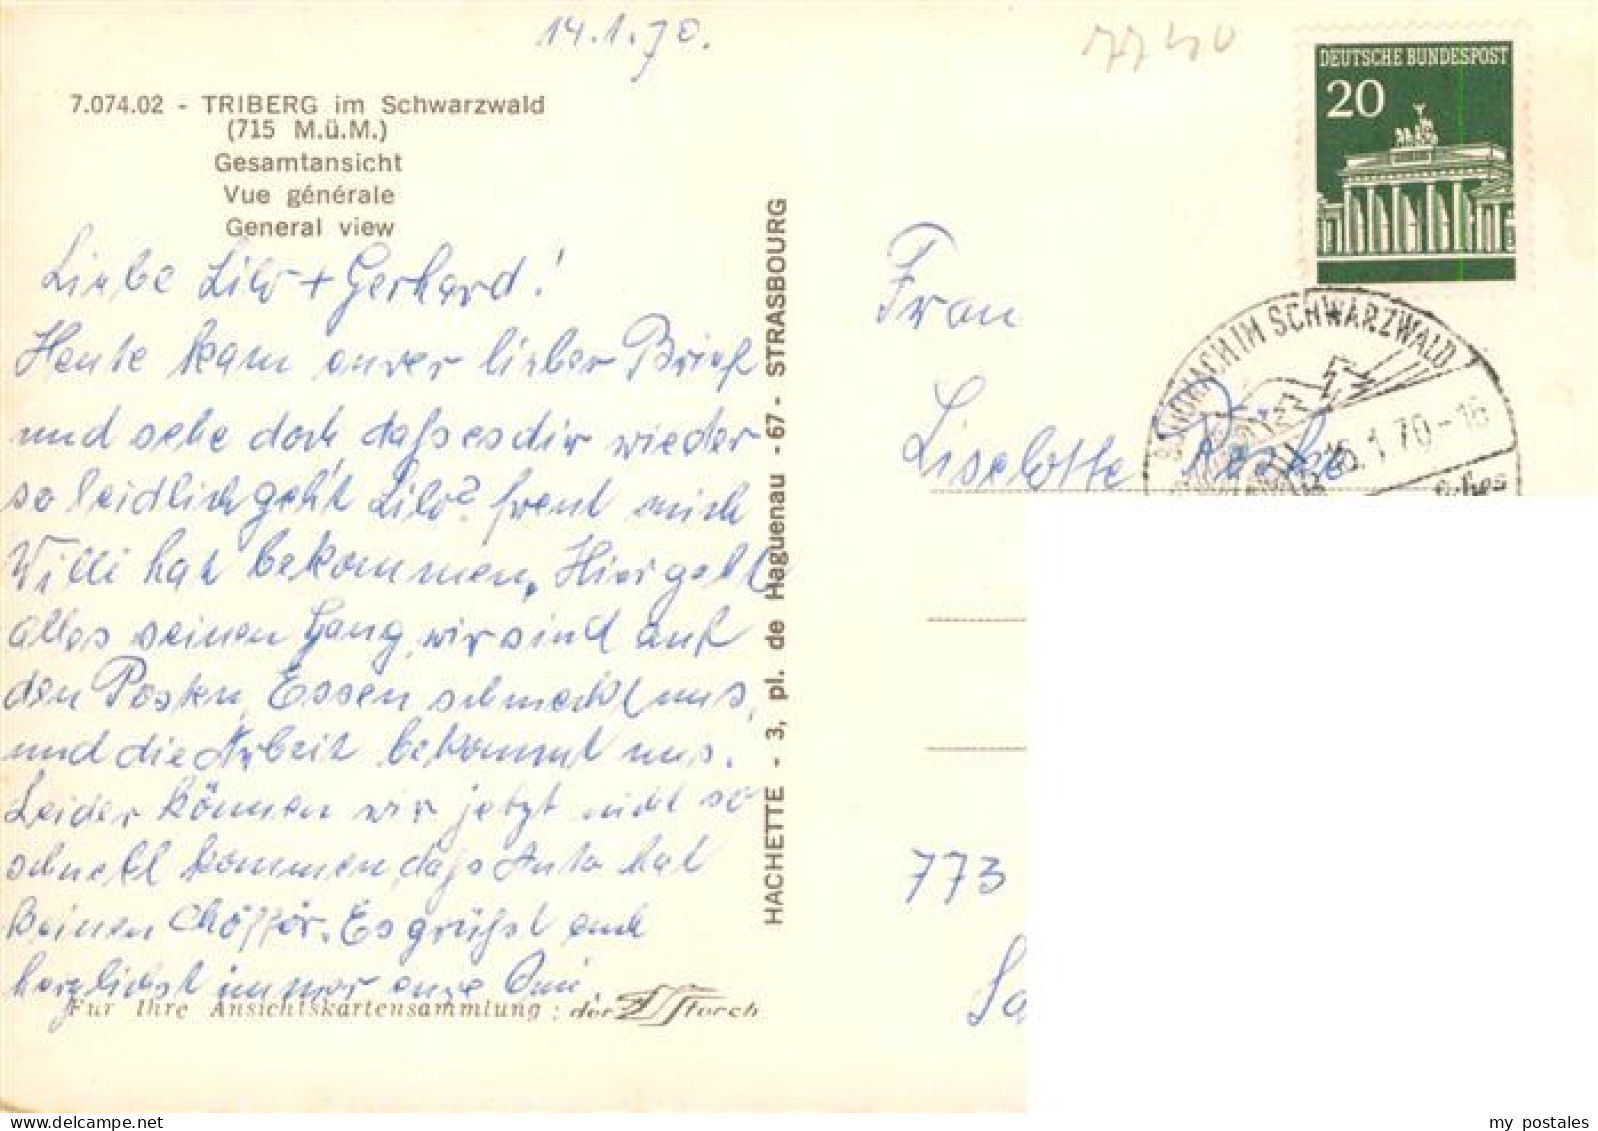 14.1.70.
7740
7.074.02 - TRIBERG im Schwarzwald
(715 M.ü.M.)
Gesamtansicht
Vue générale
General view
Liebe Lilo + Gerhard!
Heute kam eurer lieber Brief
und sehe doch, daß es dir wieder
so leidlich geht Lilo? freut mich
Willi hat bekommen. Hier geht
alles seinen Gang, wir sind auf
den Posten, Essen schmeckt uns,
und die Arbeit bekommt uns.
Leider können wir jetzt nicht so
schnell kommen, daß Auto hat
keinen Chöfför. Es grüßt euch
herzlichst immer eure Omi.
Für Ihre Ansichtskartensammlung : der Storch
HACHETTE - 3, pl. de Haguenau - 67 - STRASBOURG
DEUTSCHE BUNDESPOST
20
IM SCHWARZWALD
15.1.70-16
Frau
Liselotte
773
my postales